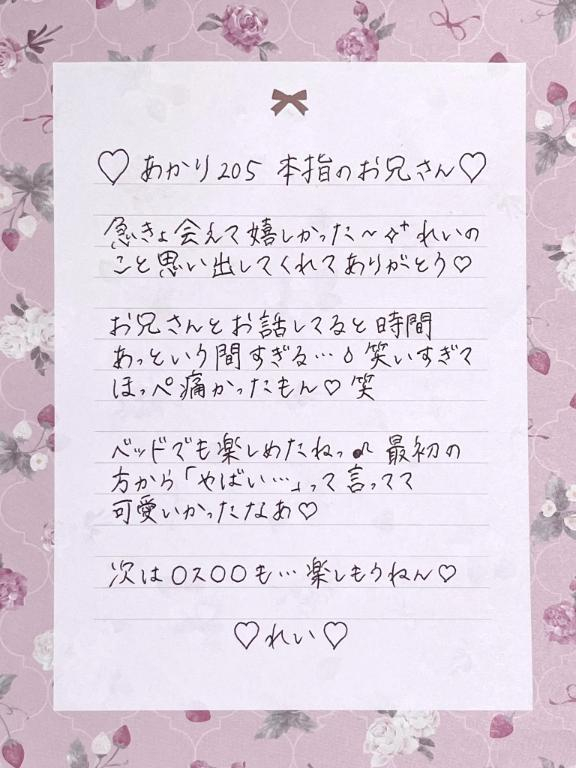 ♡ あかり205 本指のお兄さん♡
急きょ会えて嬉しかった〜✧⁺ れいの
こと思い出してくれてありがとう♡
お兄さんとお話してると時間
あっという間すぎる…💧笑いすぎて
ほっぺ痛かったもん♡笑
ベッドでも楽しめたねっ♪ 最初の
方から「やばい…」って言ってて
可愛いかったなあ♡
次は○ス○○も…楽しもうねん♡
♡れい♡